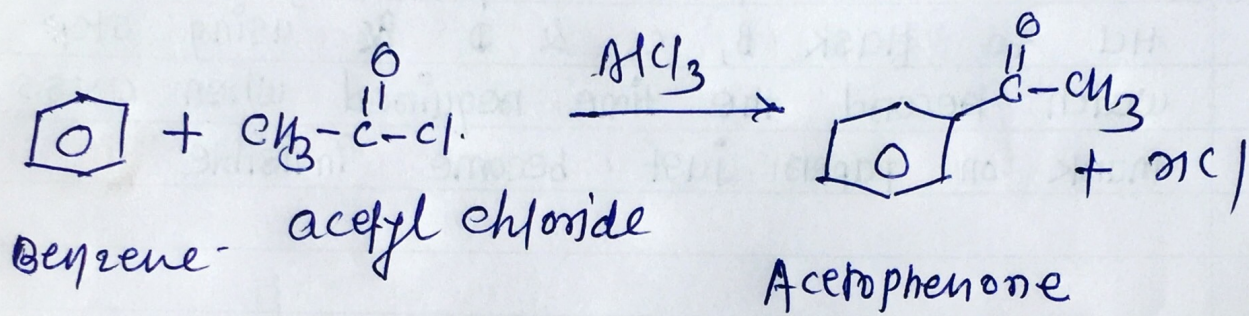 O O
|| ||
+ CH3-C-Cl. AlCl3 C-CH3
+ HCl
Benzene- acetyl chloride
Acetophenone